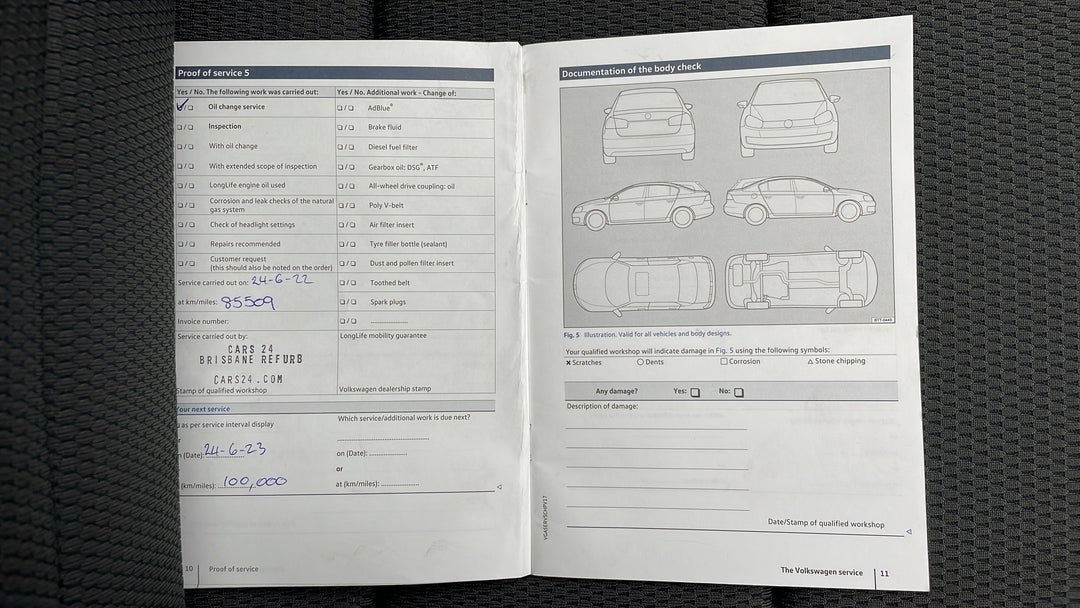 Proof of service 5
Yes / No. The following work was carried out:
Yes / No. Additional work – Change of:
Oil change service
AdBlue®
Inspection
Brake fluid
With oil change
Diesel fuel filter
With extended scope of inspection
Gearbox oil: DSG®, ATF
LongLife engine oil used
All-wheel drive coupling: oil
Corrosion and leak checks of the natural
gas system
Poly V-belt
Check of headlight settings
Air filter insert
Repairs recommended
Tyre filler bottle (sealant)
Customer request
(this should also be noted on the order)
Dust and pollen filter insert
Service carried out on: 24-6-22
Toothed belt
at km/miles: 85509
Spark plugs
Invoice number:
Service carried out by:
LongLife mobility guarantee
CARS 24
BRISBANE REFURB
CARS24.COM
Stamp of qualified workshop
Volkswagen dealership stamp
Your next service
as per service interval display
Which service/additional work is due next?
(Date): 24-6-23
on (Date):
or
(km/miles): 100,000
at (km/miles):
10 Proof of service
Documentation of the body check
Fig. 5 Illustration. Valid for all vehicles and body designs.
Your qualified workshop will indicate damage in Fig. 5 using the following symbols:
× Scratches ○ Dents □ Corrosion △ Stone chipping
Any damage? Yes: No:
Description of damage:
Date/Stamp of qualified workshop
The Volkswagen service 11